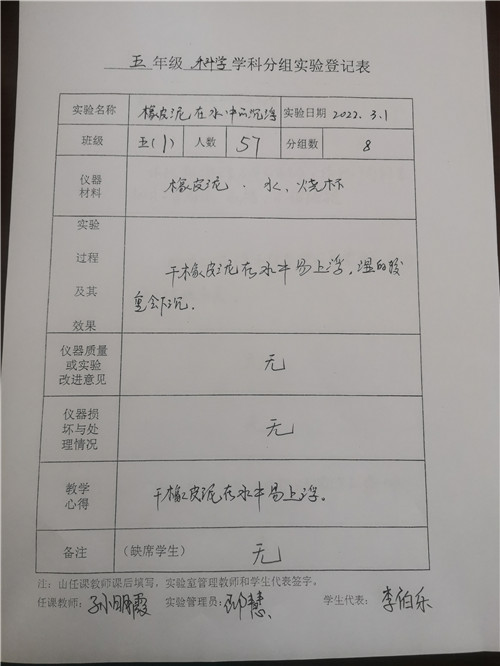 五 年级 科学 学科分组实验登记表
实验名称 橡皮泥在水中的沉浮 实验日期 2022.3.1
班级 五(1) 人数 57 分组数 8
仪器
材料
橡皮泥、水、烧杯
实验
过程
及其
效果
干橡皮泥在水中易上浮,湿的较
重会下沉.
仪器质量
或实验
改进意见
无
仪器损
坏与处
理情况
无
教学
心得
干橡皮泥在水中易上浮。
备注 (缺席学生) 无
注:由任课教师课后填写,实验室管理教师和学生代表签字。
任课教师:孙明霞 实验管理员: 慧 学生代表:李伯乐